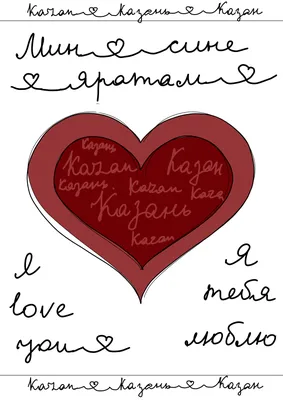 Kazan Казань Казан
Мин сине
яратам
Казань
Kazan Казан
Казань Kazan
Казань
Kazan
I
love
you
Я
тебя
люблю
Kazan Казань Казан